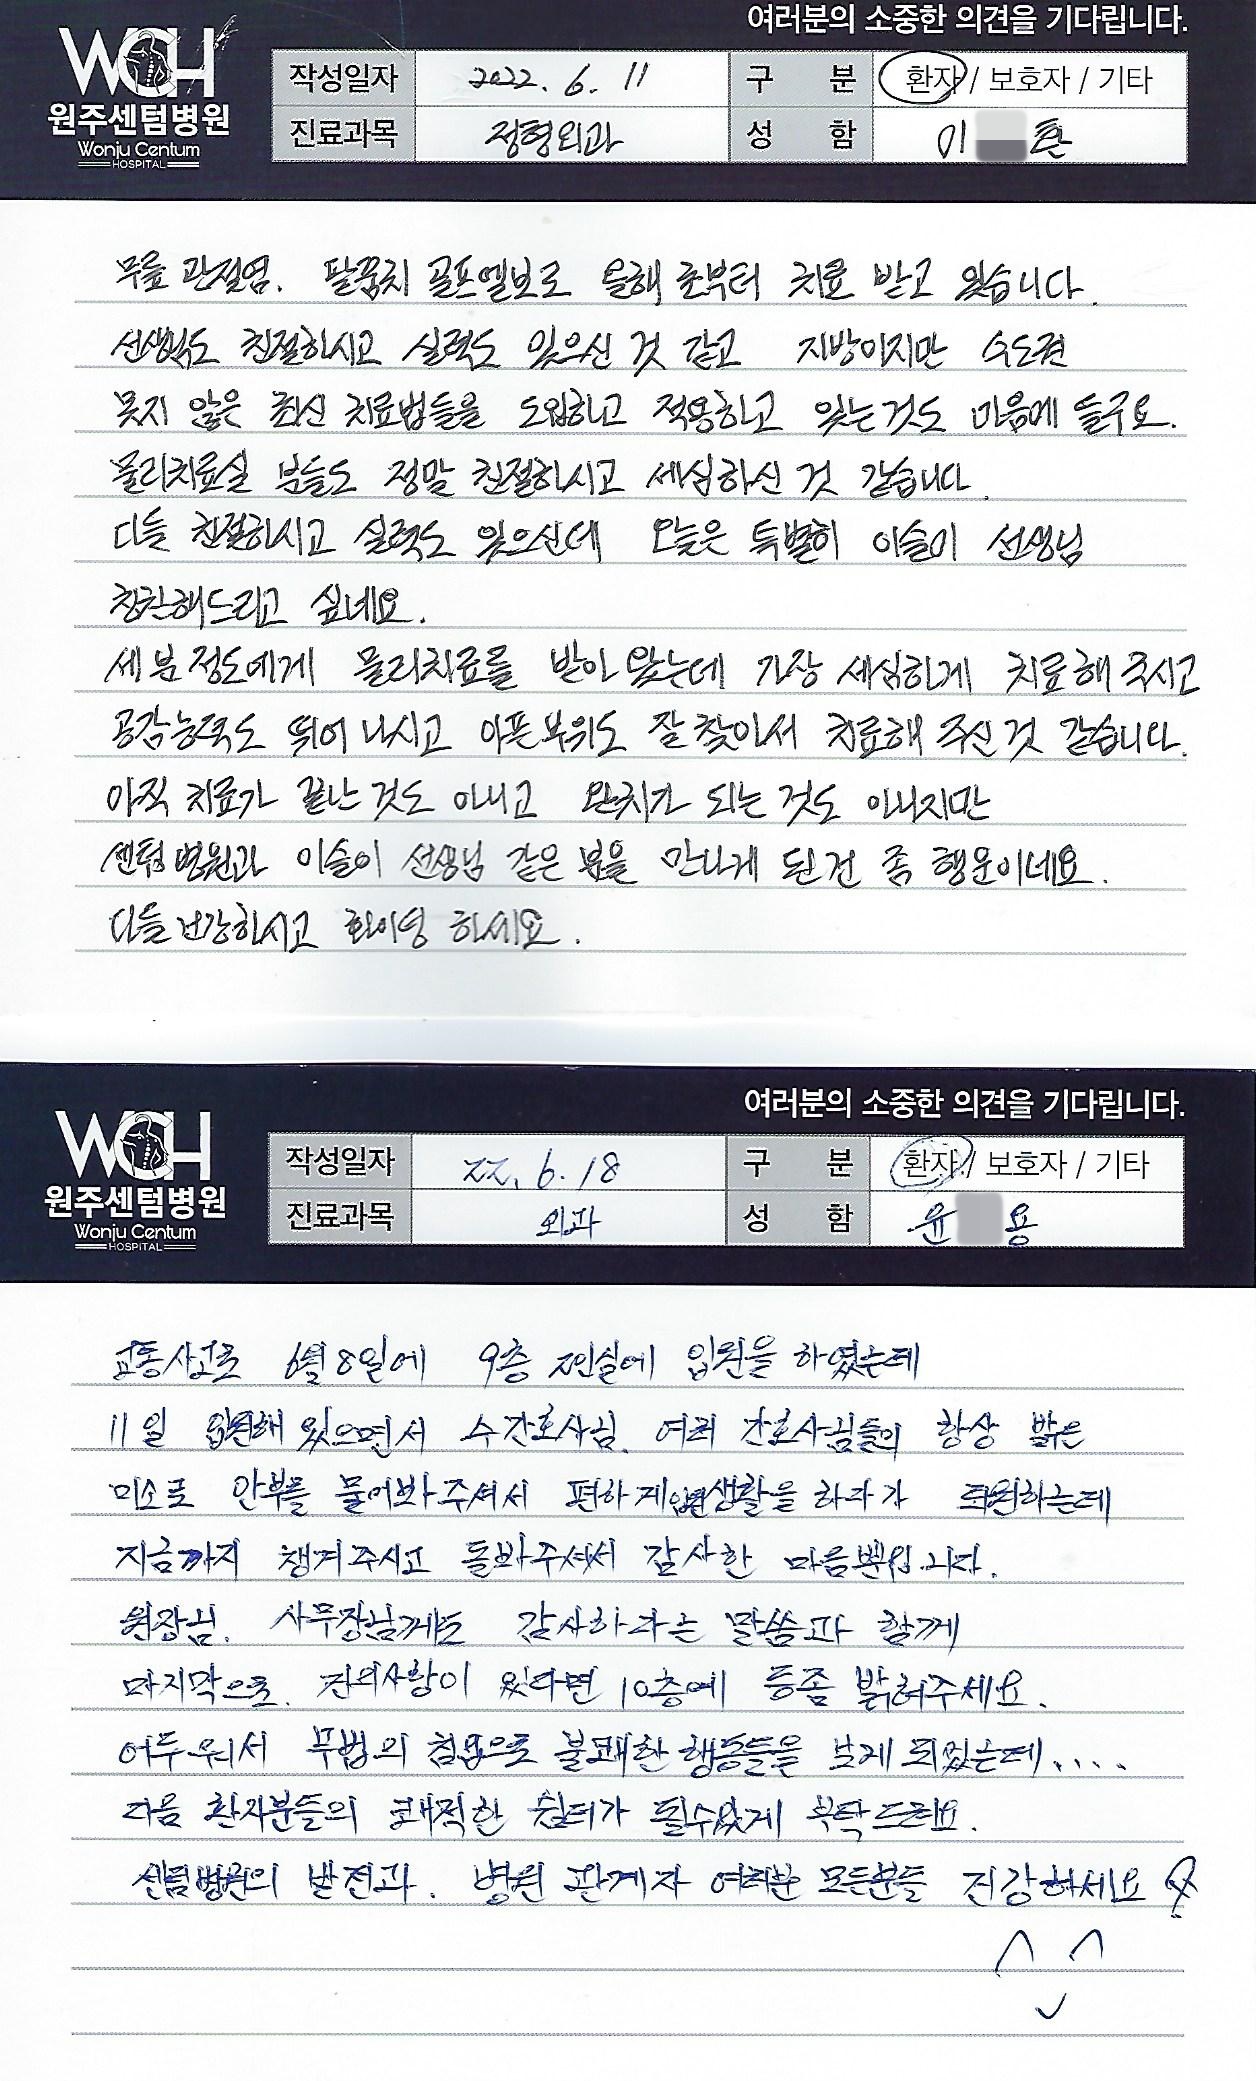 여러분의 소중한 의견을 기다립니다.
WCH
원주센텀병원
Wonju Centum
HOSPITAL
작성일자 2022. 6. 11 구 분 환자 / 보호자 / 기타
진료과목 정형외과 성 함 이 훈
무릎 관절염. 팔꿈치 골프엘보로 올해 초부터 치료 받고 있습니다.
선생님도 친절하시고 실력도 있으신 것 같고 지방이지만 수도권
못지 않은 최신 치료법들을 도입하고 적용하고 있는것도 마음에 들구요.
물리치료실 분들도 정말 친절하시고 세심하신 것 같습니다.
다들 친절하시고 실력도 있으신데 오늘은 특별히 이슬이 선생님
칭찬해드리고 싶네요.
세 분 정도에게 물리치료를 받아 왔는데 가장 세심하게 치료해 주시고
공감능력도 뛰어 나시고 아픈부위도 잘 찾아서 치료해 주신 것 같습니다.
아직 치료가 끝난 것도 아니고 완치가 되는 것도 아니지만
센텀병원과 이슬이 선생님 같은 분을 만나게 된건 좀 행운이네요.
다들 건강하시고 화이팅 하세요.
여러분의 소중한 의견을 기다립니다.
WCH
원주센텀병원
Wonju Centum
HOSPITAL
작성일자 22. 6. 18 구 분 환자 / 보호자 / 기타
진료과목 외과 성 함 윤 용
교통사고로 6월 8일에 9층 2인실에 입원을 하였는데
11일 입원해 있으면서 수간호사님. 여러 간호사님들의 항상 밝은
미소로 안부를 물어봐주셔서 편하게 입원생활을 하다가 퇴원하는데
지금까지 챙겨주시고 돌봐주셔서 감사한 마음뿐입니다.
원장님. 사무장님께도 감사하다는 말씀과 함께
마지막으로. 건의사항이 있다면 10층에 등좀 밝혀주세요.
어두워서 무법의 불쾌한 행동들을 보게 되었는데....
다음 환자분들의 쾌적한 쉼터가 될수있게 부탁드려요.
센텀병원의 발전과. 병원 관계자 여러분 모든분들 건강하세요